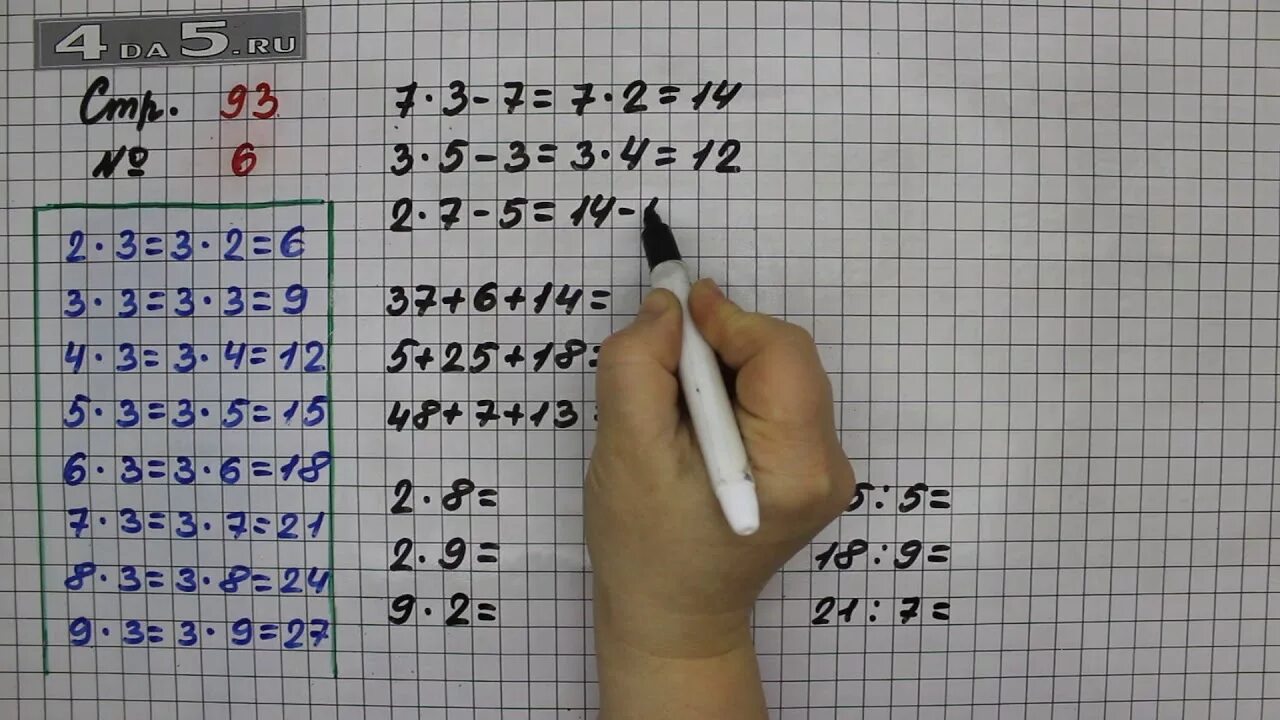 4DA5.RU
Стр. 93
№ 6
2·3=3·2=6
3·3=3·3=9
4·3=3·4=12
5·3=3·5=15
6·3=3·6=18
7·3=3·7=21
8·3=3·8=24
9·3=3·9=27
7·3-7=7·2=14
3·5-3=3·4=12
2·7-5=14-
37+6+14=
5+25+18=
48+7+13=
2·8=
2·9=
9·2=
5:5=
18:9=
21:7=